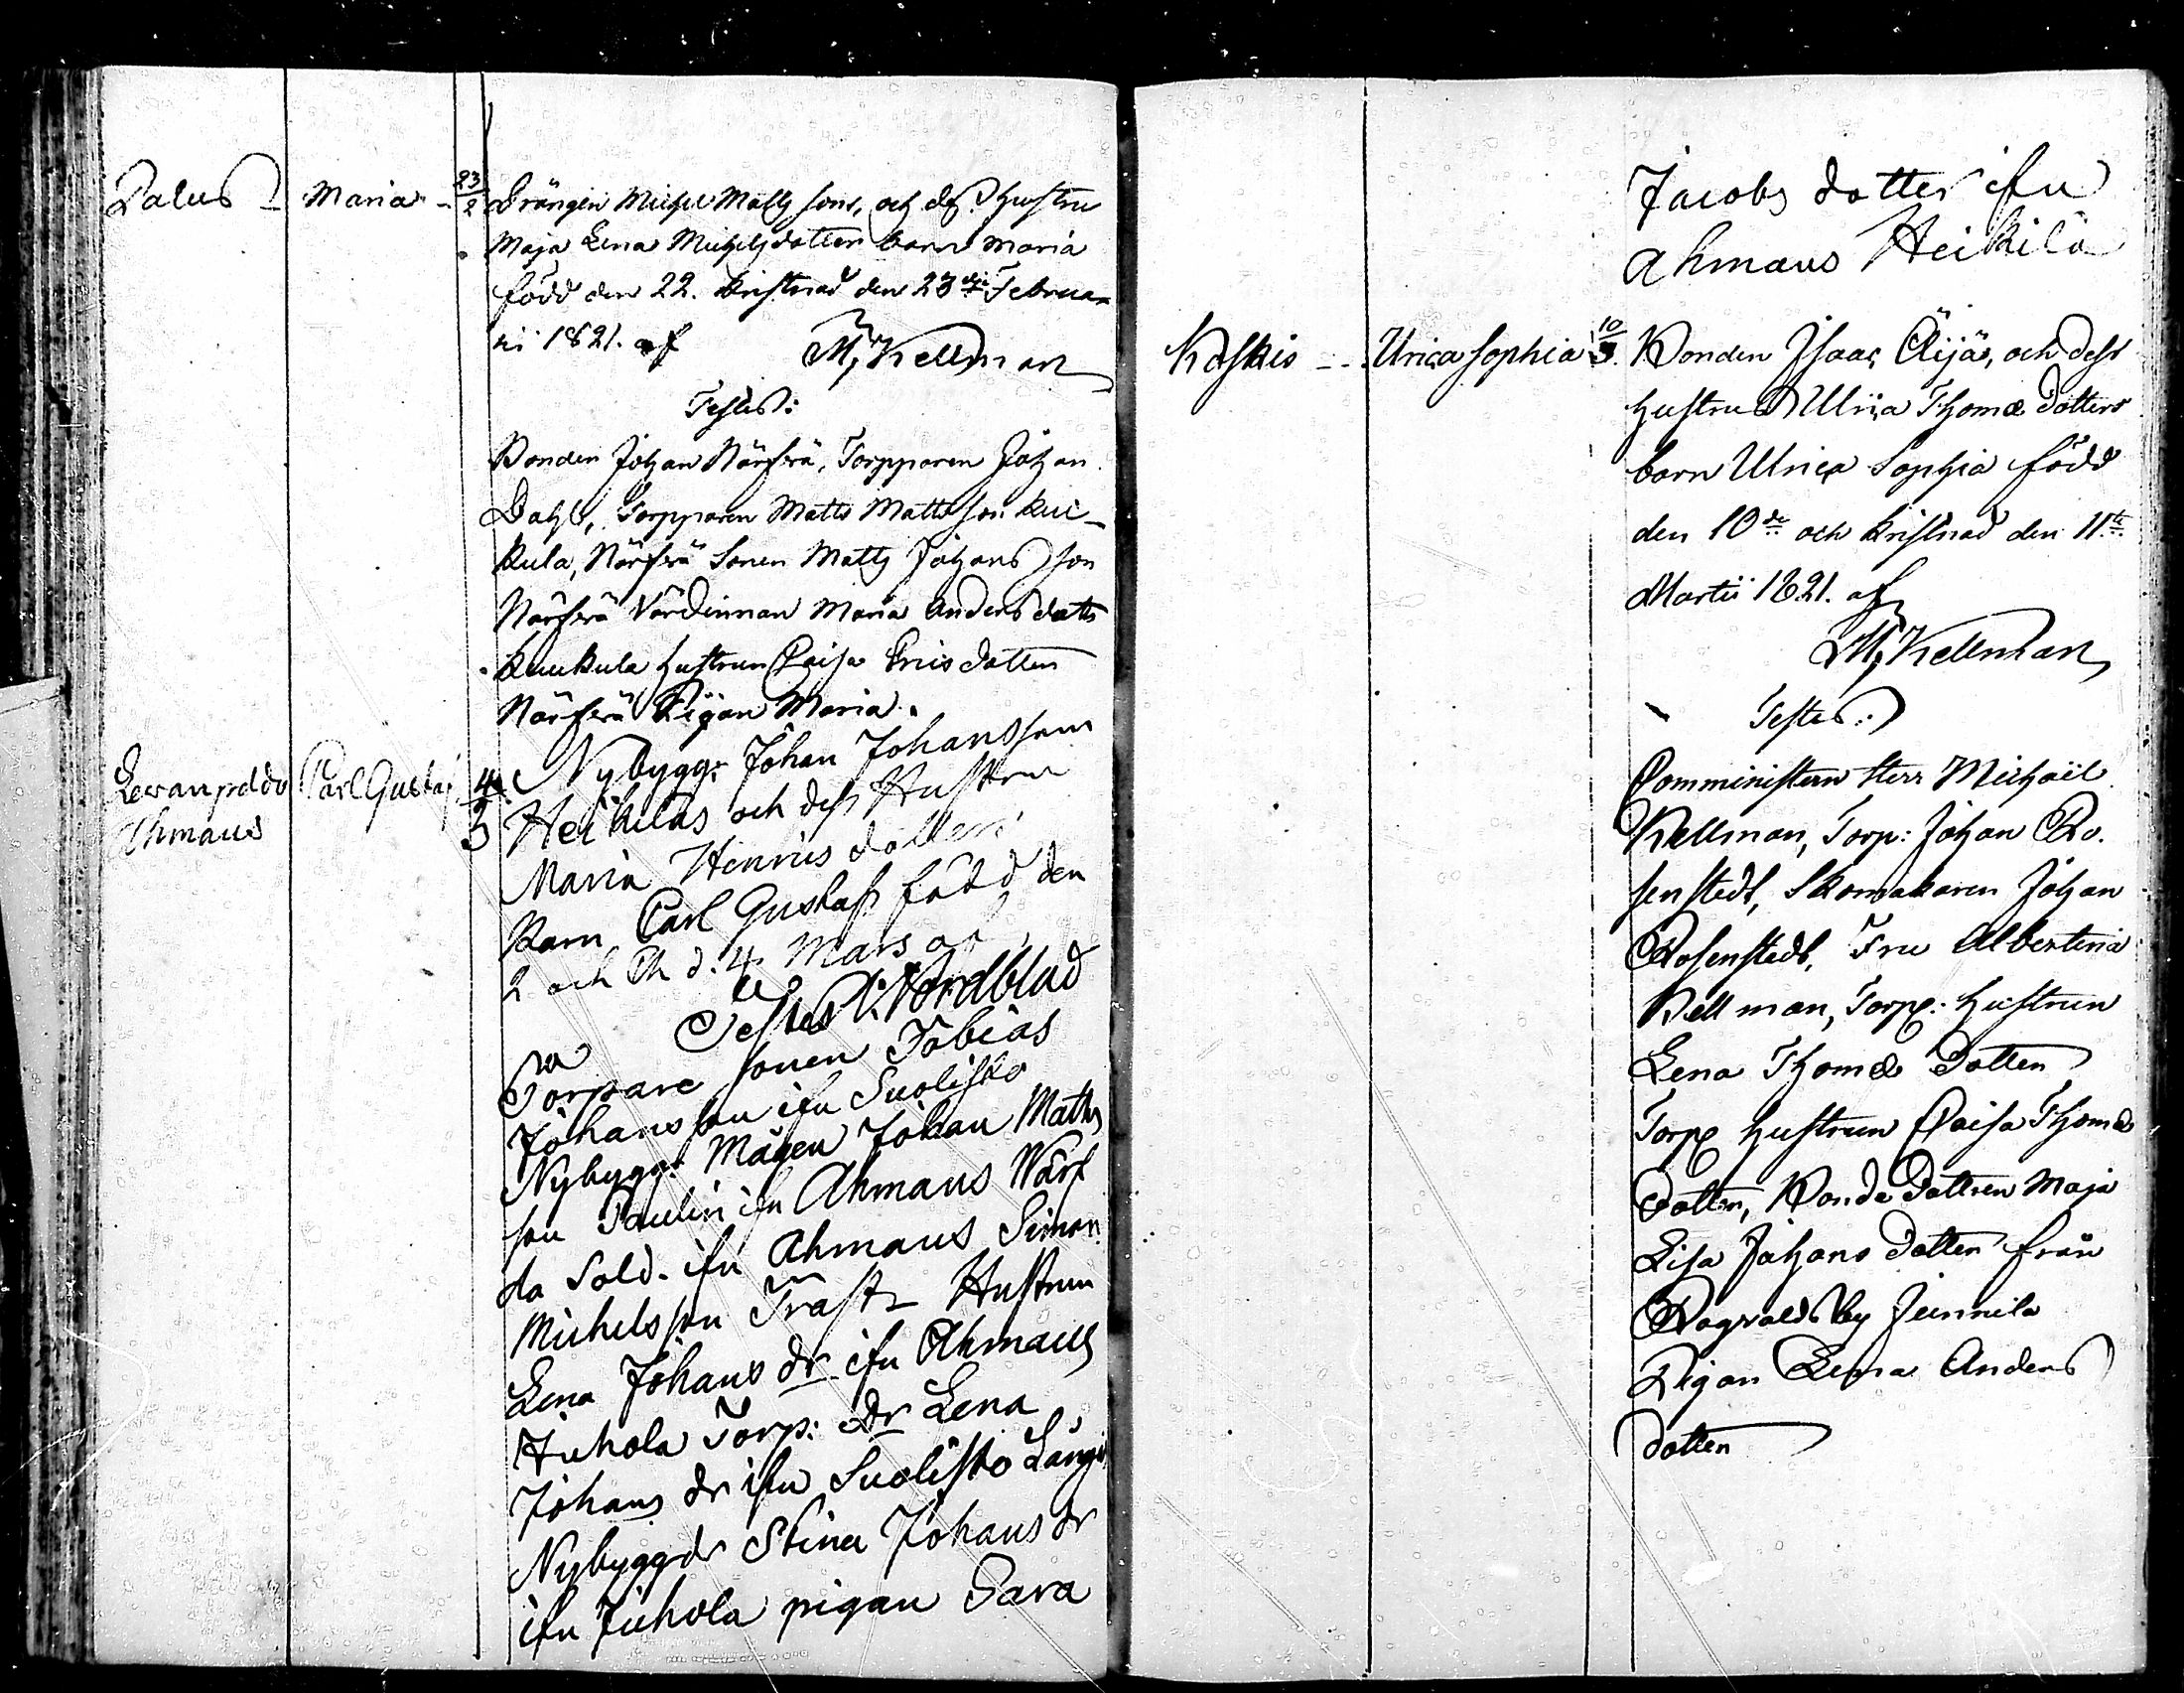 Palus - Maria - 23/2 Drängen Michel Matts sons, och dess Hustru
Maja Lena Michelsdotters barn Maria
född den 22. kristnad den 23dje Februa-
rii 1821. af M, Kellman
Testes:
Bonden Johan Närferä, Torpparen Johan
Dahl, Torpparen Matts Matts son kui-
kula, Närferä Sonen Matts Johans son
Närferä Värdinnan Maria Anders dotter
kuukula hustrun Caisa Eriis dotter
Närferä Pigan Maria.
Lewanpeldo Carl Gustaf 4/3 Nybygg: Johan Johanssons
Ahmaus Heikilas och dess Hustru
Maria Henrics dotters
Barn Carl Gustaf född den
2 och Ch d. 4 Mars af
Testes Nordblad
Torpare sonen Tobias
Johansson ifn Suolisto
Nybygg: Mågen Johan Matts
son Paulin ifn Ahmaus Wärf
da Sold. ifn Ahmaus Simon
Michelsson Trast Hustrun
Lena Johans dr ifn Ahmaus
Juhola Torp: Dr Lena
Johans dr ifn Suolisto Långi
Nybyggdr Stina Johans dr
ifn Juhola pigan Sara
Jacobs dotter ifn
Ahmaus Heikilä
Koskis - - Urica Sophia 10/3. Bonden Isaac Äijä, och dess
hustrus Ulrica Thomæ dotters
barn Ulrica Sophia född
den 10de och kristnad den 11te
Martii 1821. af
M, Kellman
Testes:
Comministern Herr Michaël
Kellman, Torp: Johan Ro-
senstedt, Skomakaren Johan
Rosenstedt, Fru Albertina
Kellman, Torp: hustrun
Lena Thomæ Dotter
Torp hustrun Caisa Thomæ
Dotter, Bonde Dottren Maja
Lisa Johans dotter från
Ragvalds by Junnila
Pigan Lena Anders
dotter